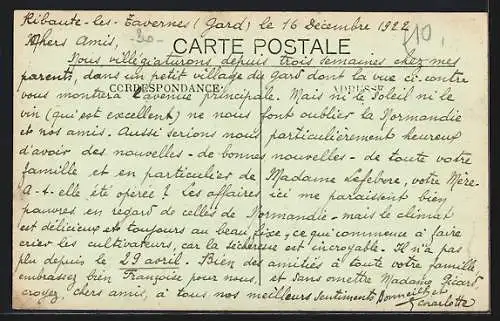 Ribaute-les-Tavernes (Gard) le 16 Décembre 1922
Chers Amis,
CARTE POSTALE
Nous villégiaturons depuis trois semaines chez mes
parents, dans un petit village du Gard dont la vue ci-contre
CORRESPONDANCE
ADRESSE
vous montrera l'avenue principale. Mais ni le Soleil ni le
vin (qui est excellent) ne nous font oublier la Normandie
et nos amis. Aussi serions nous particulièrement heureux
d'avoir des nouvelles - de bonnes nouvelles - de toute votre
famille et en particulier de Madame Lefebvre, votre Mère.
A-t-elle été opérée? Les affaires ici me paraissent bien
pauvres en regard de celles de Normandie - mais le climat
est délicieux et toujours au beau fixe, ce qui commence à faire
crier les cultivateurs, car la sécheresse est incroyable. Il n'a pas
plu depuis le 29 avril. Bien des amitiés à toute votre famille,
embrassez bien Françoise pour nous, et sans omettre Madame
croyez, chers amis, à tous nos meilleurs sentiments
Charlotte